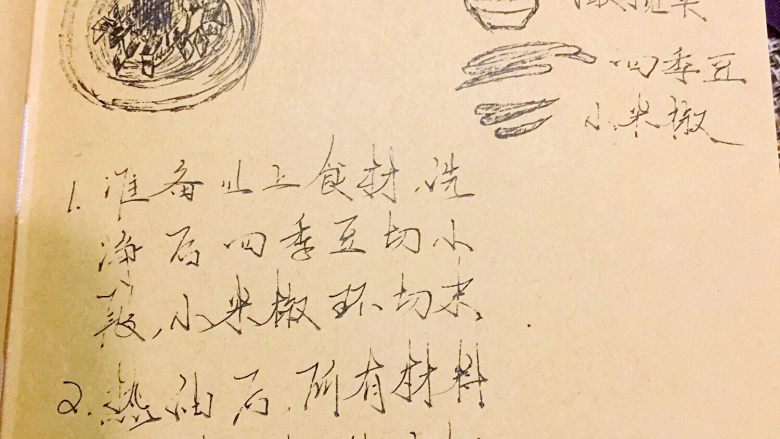 四季豆
小米椒
1. 准备以上食材，洗
净后四季豆切小
段，小米椒环切末。
2. 熱油后，所有材料